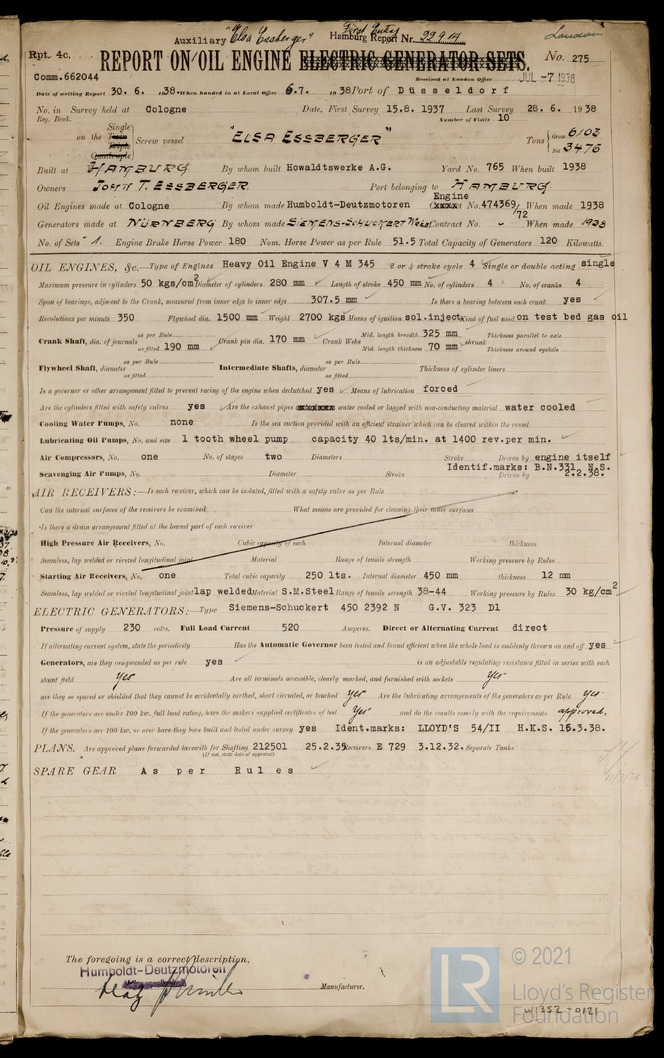 Auxiliary "Elsa Essberger" First Entry Hamburg Report Nr. 22914 London
Rpt. 4c. REPORT ON OIL ENGINE ELECTRIC GENERATOR SETS. No. 275
Comm.662044 Received at London Office JUL -7 1938
Date of writing Report 30. 6. 1938. When handed in at Local Office 6.7. 1938 Port of Düsseldorf
No. in Survey held at Cologne Date, First Survey 15.8. 1937 Last Survey 28. 6. 1938
Reg. Book. Number of Visits 10
on the Single Twin Triple Quadruple Screw vessel "ELSA ESSBERGER" Tons Gross 6103 Net 3476
Built at HAMBURG By whom built Howaldtswerke A.G. Yard No. 765 When built 1938
Owners JOHN T. ESSBERGER Port belonging to HAMBURG
Oil Engines made at Cologne By whom made Humboldt-Deutzmotoren Engine No. 474369/72 When made 1938
Generators made at NÜRNBERG By whom made SIEMENS-SCHUCKERT Werke Contract No. - When made 1938
No. of Sets 1. Engine Brake Horse Power 180 Nom. Horse Power as per Rule 51.5 Total Capacity of Generators 120 Kilowatts.
OIL ENGINES, &c.—Type of Engines Heavy Oil Engine V 4 M 345 2 or 4 stroke cycle 4 Single or double acting single
Maximum pressure in cylinders 50 kgs/cm2 Diameter of cylinders 280 mm Length of stroke 450 mm No. of cylinders 4 No. of cranks 4
Span of bearings, adjacent to the Crank, measured from inner edge to inner edge 307.5 mm Is there a bearing between each crank yes
Revolutions per minute 350 Flywheel dia. 1500 mm Weight 2700 kgs Means of ignition sol.inject. Kind of fuel used on test bed gas oil
Crank Shaft, dia. of journals as per Rule as fitted 190 mm Crank pin dia. 170 mm Crank Webs Mid. length breadth 325 mm Mid. length thickness 70 mm shrunk Thickness parallel to axis Thickness around eyehole
Flywheel Shaft, diameter as per Rule as fitted Intermediate Shafts, diameter as per Rule as fitted Thickness of cylinder liners
Is a governor or other arrangement fitted to prevent racing of the engine when declutched yes Means of lubrication forced
Are the cylinders fitted with safety valves yes Are the exhaust pipes water cooled or lagged with non-conducting material water cooled
Cooling Water Pumps, No. none Is the sea suction provided with an efficient strainer which can be cleared within the vessel
Lubricating Oil Pumps, No. and size 1 tooth wheel pump capacity 40 lts/min. at 1400 rev.per min.
Air Compressors, No. one No. of stages two Diameters Stroke Driven by engine itself
Identif.marks: B.N.331 N.S.
Scavenging Air Pumps, No. Diameter Stroke Driven by 2.2.38.
AIR RECEIVERS:—Is each receiver, which can be isolated, fitted with a safety valve as per Rule
Can the internal surfaces of the receivers be examined What means are provided for cleaning their inner surfaces
Is there a drain arrangement fitted at the lowest part of each receiver
High Pressure Air Receivers, No. Cubic capacity of each Internal diameter thickness
Seamless, lap welded or riveted longitudinal joint Material Range of tensile strength Working pressure by Rules
Starting Air Receivers, No. one Total cubic capacity 250 lts. Internal diameter 450 mm thickness 12 mm
Seamless, lap welded or riveted longitudinal joint lap welded Material S.M.Steel Range of tensile strength 38-44 Working pressure by Rules 30 kg/cm2
ELECTRIC GENERATORS:—Type Siemens-Schuckert 450 2392 N G.V. 323 D1
Pressure of supply 230 volts. Full Load Current 520 Amperes. Direct or Alternating Current direct
If alternating current system, state the periodicity Has the Automatic Governor been tested and found efficient when the whole load is suddenly thrown on and off yes
Generators, are they compounded as per rule yes is an adjustable regulating resistance fitted in series with each
shunt field yes Are all terminals accessible, clearly marked, and furnished with sockets yes
are they so spaced or shielded that they cannot be accidentally earthed, short circuited, or touched yes Are the lubricating arrangements of the generators as per Rule yes
If the generators are under 100 kw. full load rating, have the makers supplied certificates of test yes and do the results comply with the requirements approved.
If the generators are 100 kw. or over have they been built and tested under survey yes Ident.marks: LLOYD'S 54/II H.K.S. 15.3.38.
PLANS. Are approved plans forwarded herewith for Shafting 212501 25.2.35 Receivers E 729 3.12.32. Separate Tanks
(If not, state date of approval)
SPARE GEAR As per Rules
The foregoing is a correct description,
Humboldt-Deutzmotoren
Manufacturer.
LR © 2021
Lloyd's Register
Foundation
W1352-0121